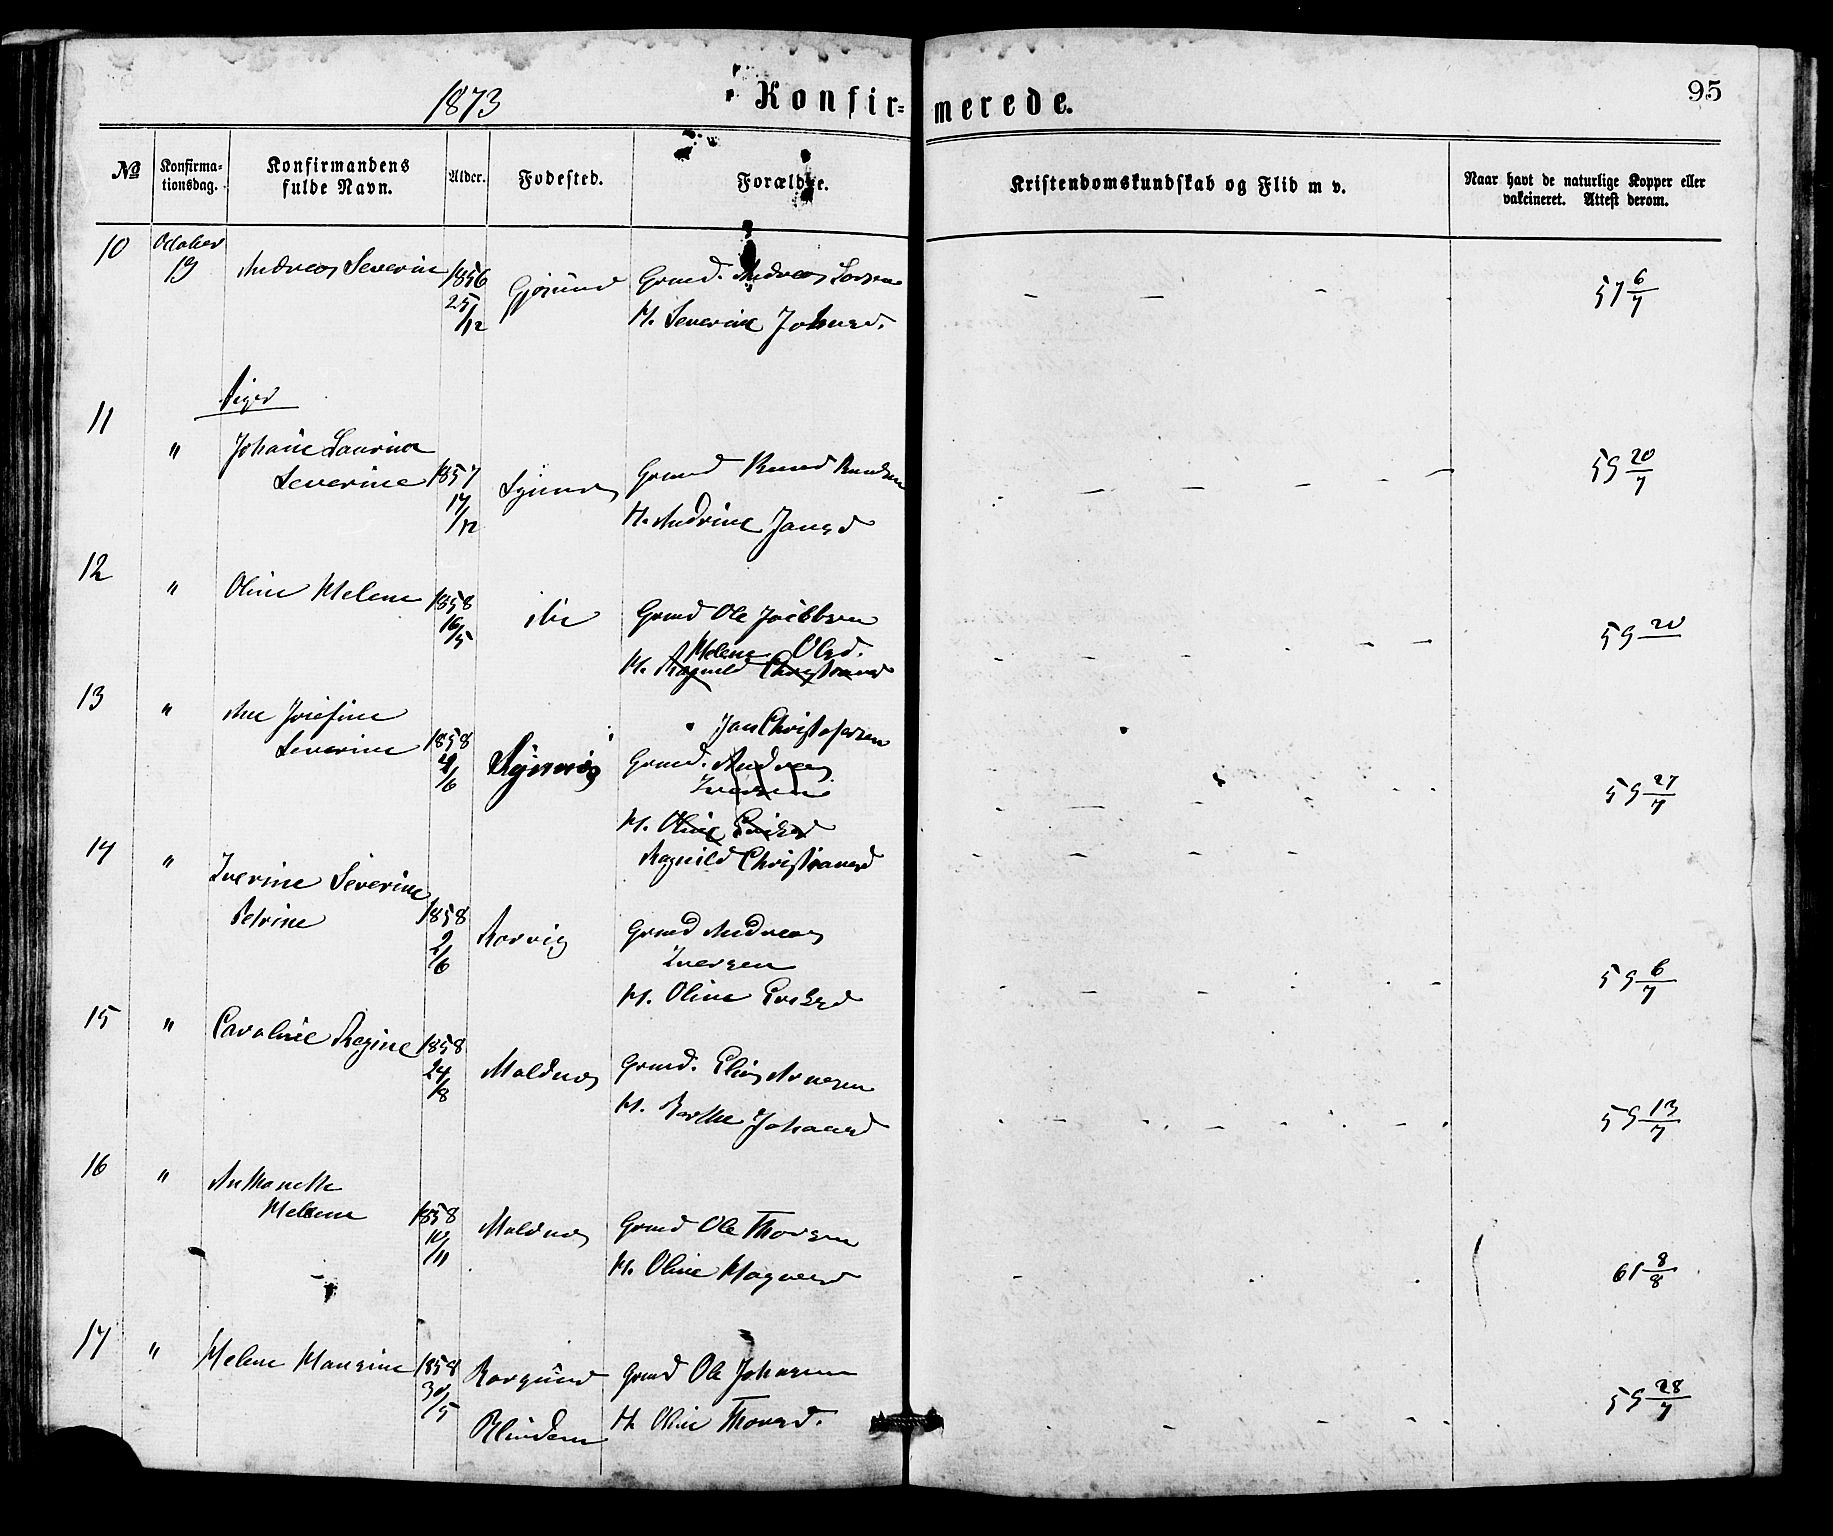 1873
Konfir-
merede.
95
No
Konfirma-
tionsdag.
Konfirmandens
fulde Navn.
Alder.
Fødested.
Forældre.
Kristendomskundskab og Flid m v.
Naar havt de naturlige Kopper eller
vakcineret. Attest derom.
10 October
19 Andreas Severin 1856 25/12 Gjøsund Grmd. Andreas Larsen
H. Severine Johnsd. 57 6/7
Piger
11 " Johanne Laurine
Severine 1857 17/12 Grmd Knud Knudsen
H. Andrine Jansd 59 20/7
12 " Oline Helene 1858 16/5 ibi Grmd Ole Jacobsen
Helene Olsd.
H. Ragnild Christiansd 59 20
13 " Ane Josefine
Severine 1858 4/6 Synnes Jan Christofersen
Grmd. Andreas
Iversen
H. Oline Eriksd
Ragnild Christiansd 59 27/7
14 " Iverine Severine
Petrine 1858 2/6 Rørvig Grmd Andreas
Iversen
H. Oline Eriksd 59 6/7
15 " Caroline Regine 1858 24/8 Moldnes Grmd. Elias Arnesen
H. Berthe Johansd 59 13/7
16 " Anthonette
Helene 1858 10/11 Moldnes Grmd Ole Thorsen
H. Oline Magnesd 61 8/8
17 " Helene Hansine 1858 30/5 Borgund Grmd Ole Johnsen
Blindem H. Oline Thorsd. 59 28/7